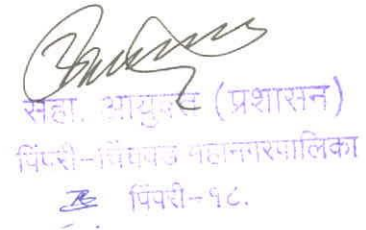 सहा. आयुक्त (प्रशासन)
पिंपरी-चिंचवड महानगरपालिका
पिंपरी-१८.